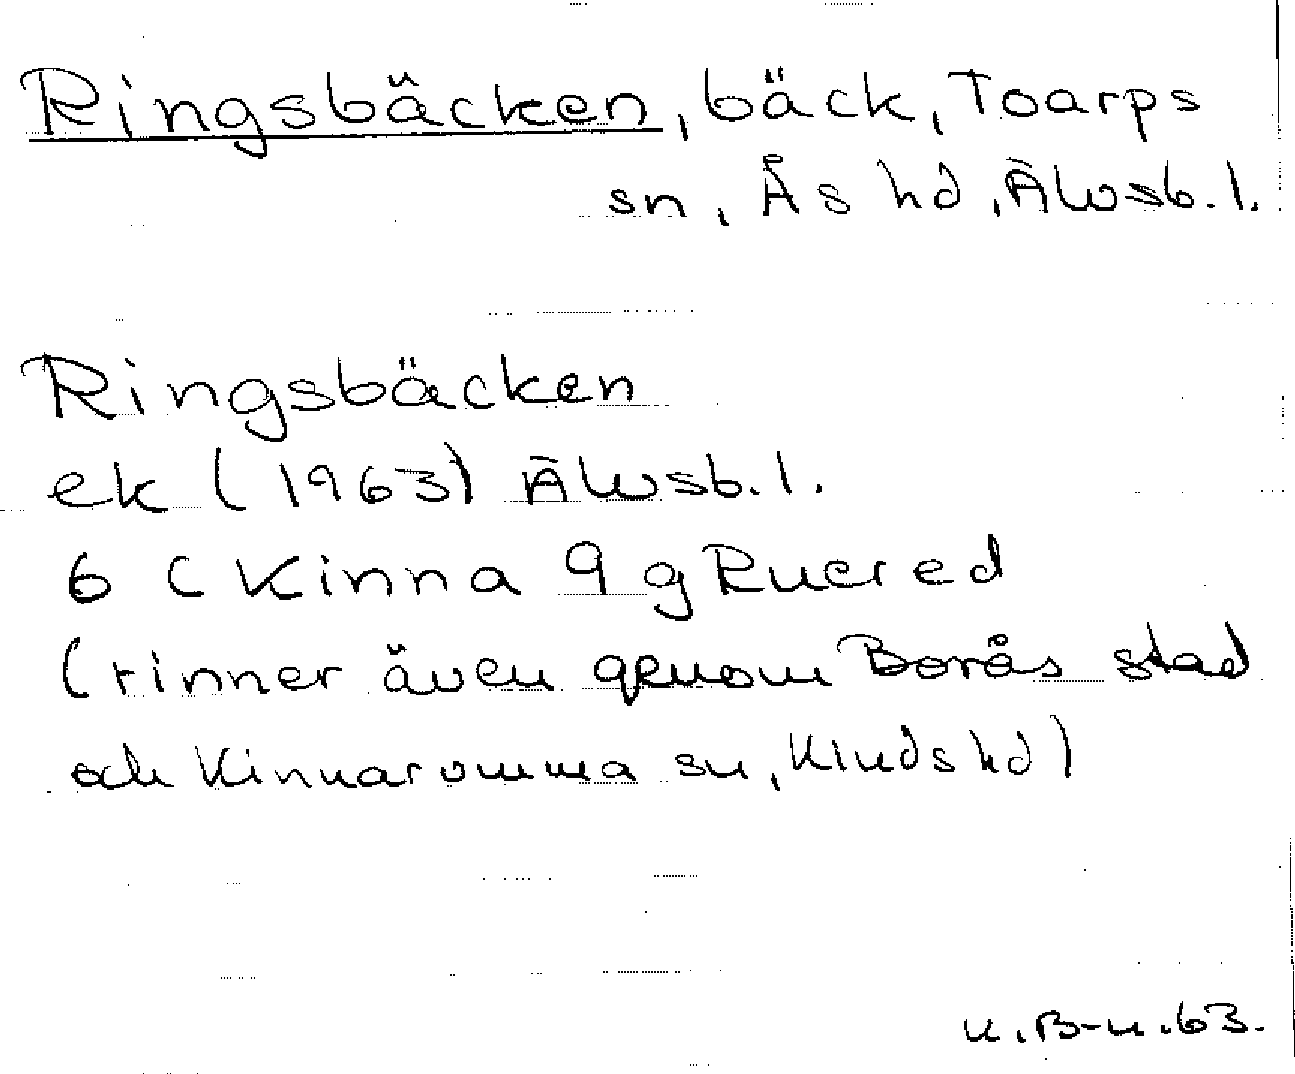 Ringsbäcken, bäck, Toarps
sn, Ås hd, Älvsb. l.
Ringsbäcken
ek (1963) Älvsb. l.
6 C Kinna 9 g Rucred
(rinner även genom Borås stad
och Kinnaromma sn, Kinds hd)
K. B-n. 63.